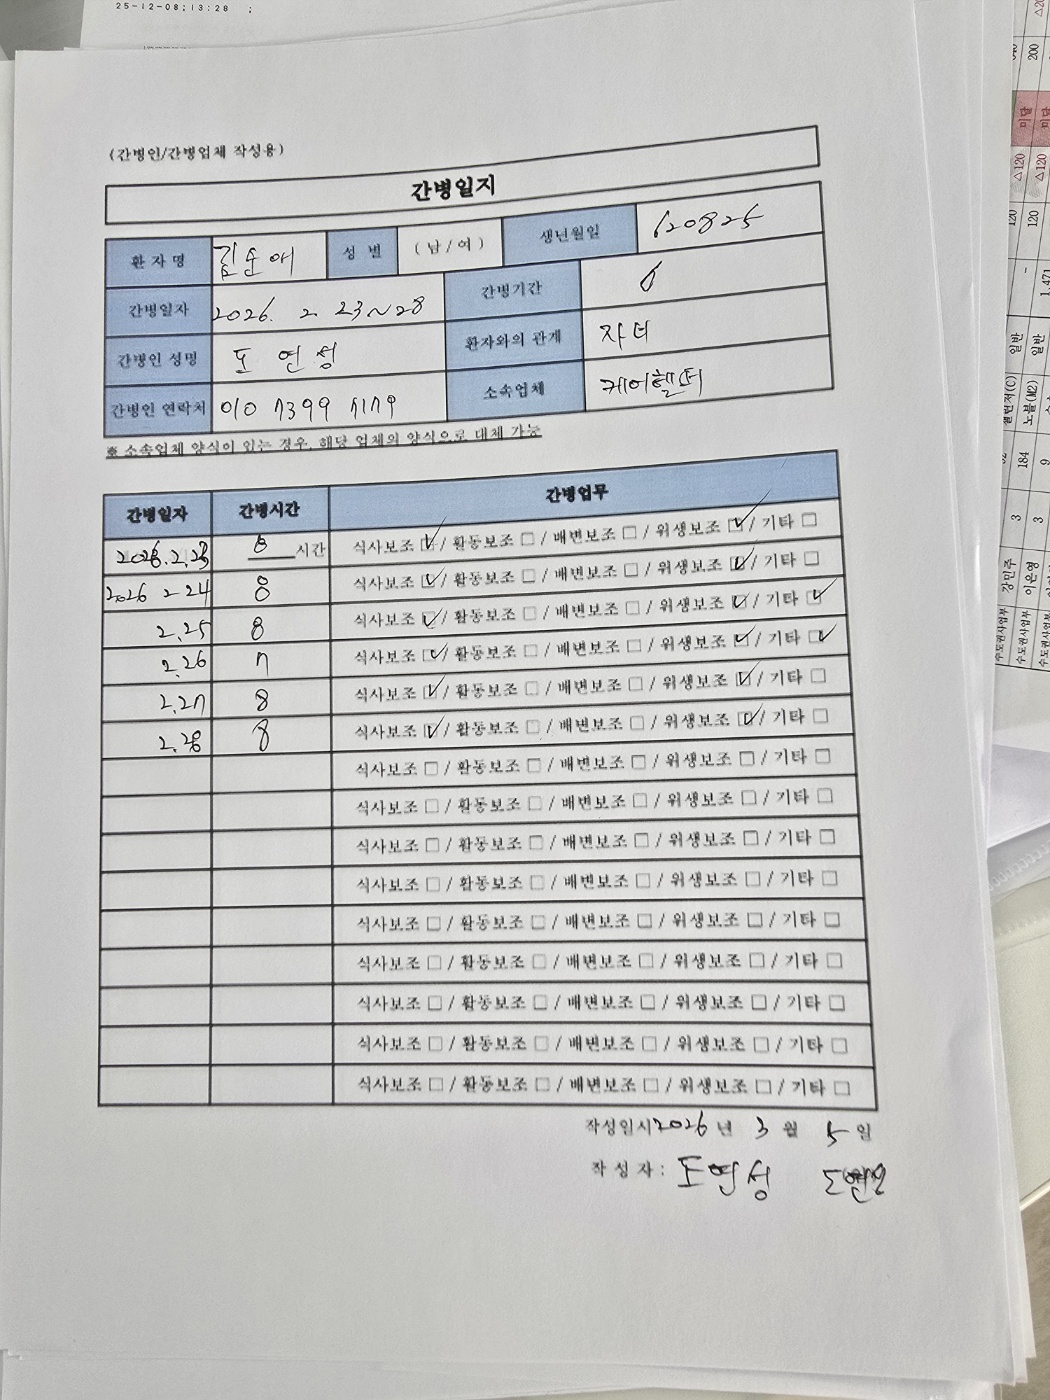 25-12-08;13:28 ;
(간병인/간병업체 작성용)
간병일지
환 자 명 김순애 성 별 ( 남 / 여 ) 생년월일 620825
간병일자 2026. 2. 23~28 간병기간 6
간병인 성명 도 연 성 환자와의 관계 자녀
간병인 연락처 010 7399 7179 소속업체 케어헬퍼
※ 소속업체 양식이 있는 경우, 해당 업체의 양식으로 대체 가능
간병일자 간병시간 간병업무
2026.2.23 8 시간 식사보조 ☑ / 활동보조 □ / 배변보조 □ / 위생보조 ☑ / 기타 □
2026 2 24 8 식사보조 ☑ / 활동보조 □ / 배변보조 □ / 위생보조 ☑ / 기타 □
2.25 8 식사보조 ☑ / 활동보조 □ / 배변보조 □ / 위생보조 ☑ / 기타 ☑
2.26 7 식사보조 ☑ / 활동보조 □ / 배변보조 □ / 위생보조 ☑ / 기타 ☑
2.27 8 식사보조 ☑ / 활동보조 □ / 배변보조 □ / 위생보조 ☑ / 기타 □
2.28 8 식사보조 ☑ / 활동보조 □ / 배변보조 □ / 위생보조 ☑ / 기타 □
식사보조 □ / 활동보조 □ / 배변보조 □ / 위생보조 □ / 기타 □
식사보조 □ / 활동보조 □ / 배변보조 □ / 위생보조 □ / 기타 □
식사보조 □ / 활동보조 □ / 배변보조 □ / 위생보조 □ / 기타 □
식사보조 □ / 활동보조 □ / 배변보조 □ / 위생보조 □ / 기타 □
식사보조 □ / 활동보조 □ / 배변보조 □ / 위생보조 □ / 기타 □
식사보조 □ / 활동보조 □ / 배변보조 □ / 위생보조 □ / 기타 □
식사보조 □ / 활동보조 □ / 배변보조 □ / 위생보조 □ / 기타 □
식사보조 □ / 활동보조 □ / 배변보조 □ / 위생보조 □ / 기타 □
식사보조 □ / 활동보조 □ / 배변보조 □ / 위생보조 □ / 기타 □
작성일시 2026 년 3 월 5 일
작 성 자 : 도연성 도연성
수도권사업부 강민주 3 184 노블(M2) 일반 - 120 △120 미달 200
수도권사업부 이은영 3 9 일반 1,471 120 △120 미달